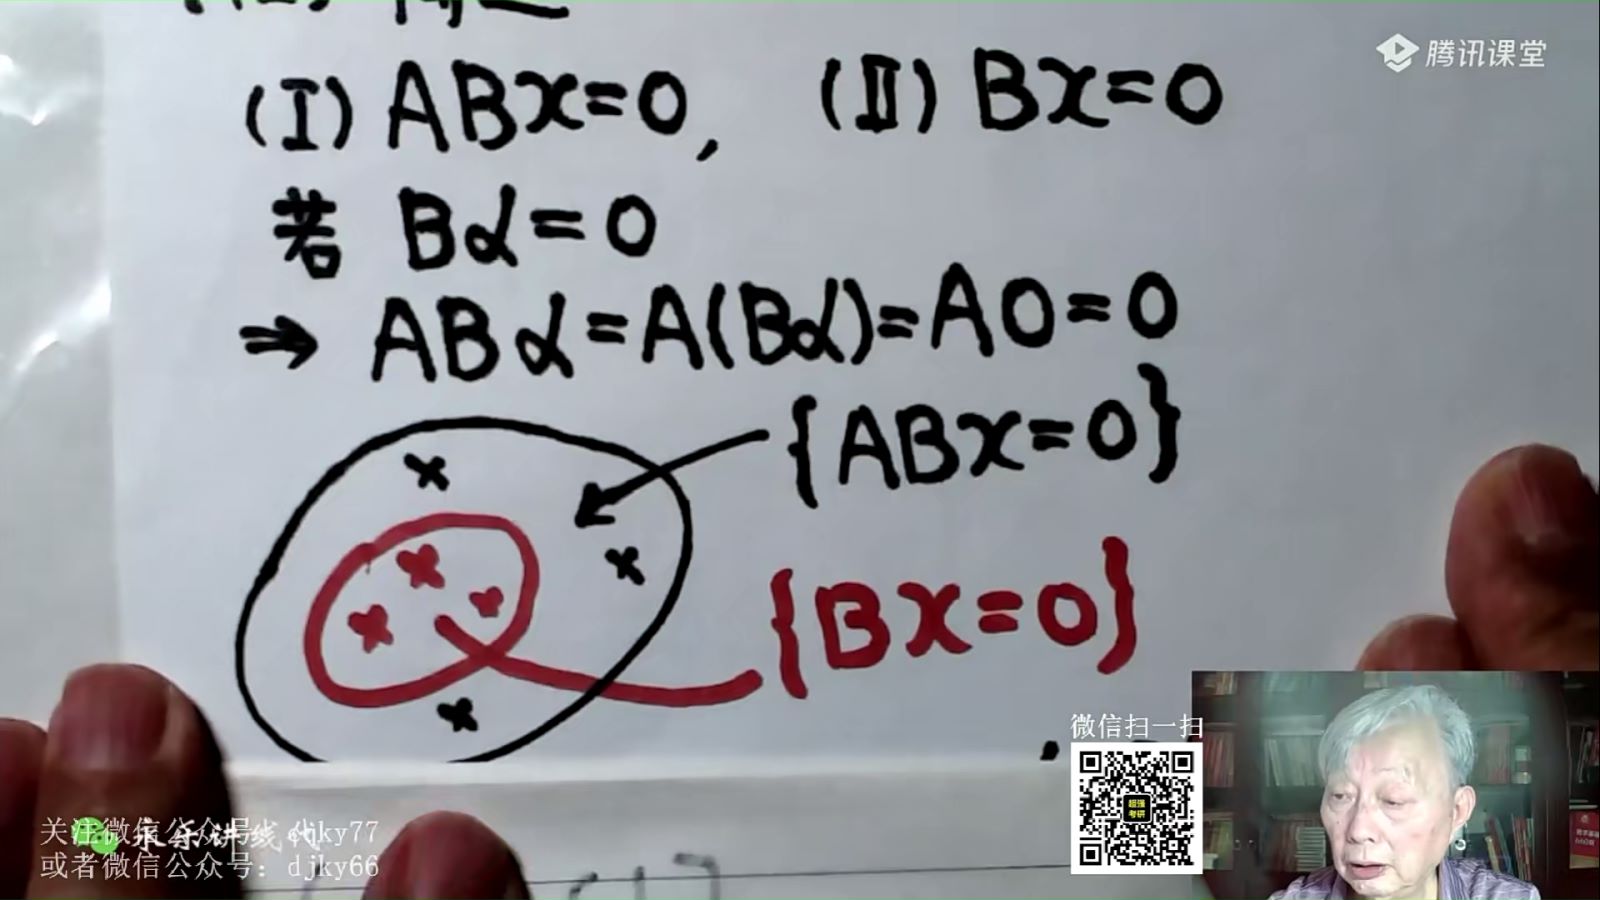 腾讯课堂
(I) ABx=0, (II) Bx=0
若 Bα=0
⇒ ABα=A(Bα)=A0=0
{ABx=0}
{Bx=0}
微信扫一扫
超强
考研
永乐讲线代
关注微信公众号: djky77
或者微信公众号: djky66